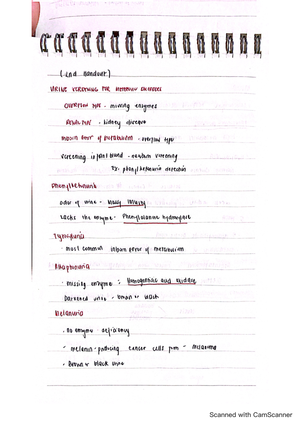 (2nd handout)
URINE SCREENING FOR METABOLIC DISORDERS
OVERFLOW TYPE - missing enzymes
RENAL TYPE - kidney disease
INBORN ERROR OF METABOLISM - overflow type
screening infant blood - newborn screening
Ex. phenylketonuria detection
Phenylketonuria
odor of urine - Mousy
lacks the enzyme - Phenylalanine hydroxylase
Tyrosinuria
- most common inborn error of metabolism
Alkaptonuria
- missing enzyme : Homogentisic acid oxidase
Darkened urine - brown or black
Melanuria
- No enzyme deficiency
- melanin-producing cancer cells from - melanoma
- Brown or black urine
Scanned with CamScanner